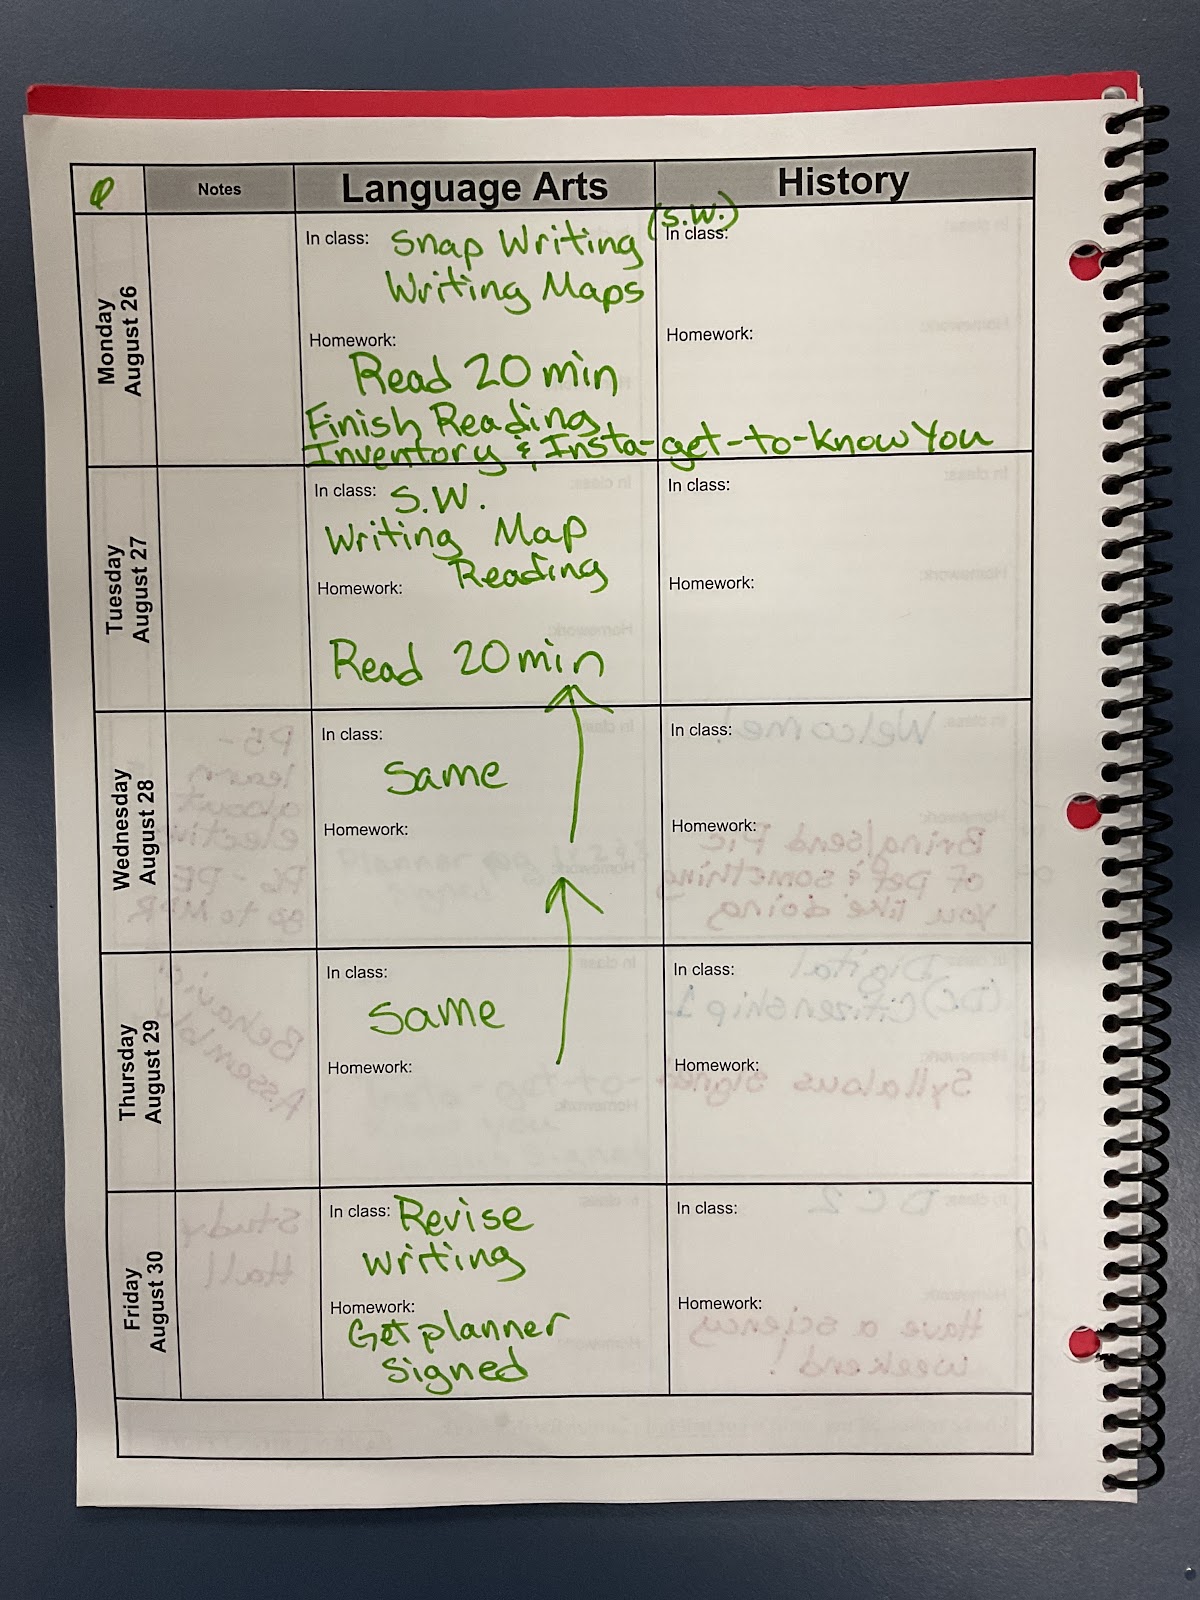 Notes
Language Arts
History
Monday
August 26
In class: Snap Writing (S.W.)
Writing Maps
Homework:
Read 20 min
Finish Reading
Inventory & Insta-get-to-know You
In class:
Homework:
Tuesday
August 27
In class: S.W.
Writing Map
Reading
Homework:
Read 20 min
In class:
Homework:
Wednesday
August 28
In class:
Same
Homework:
In class:
Homework:
Thursday
August 29
In class:
Same
Homework:
In class:
Homework:
Friday
August 30
In class: Revise
writing
Homework:
Get planner
signed
In class:
Homework: